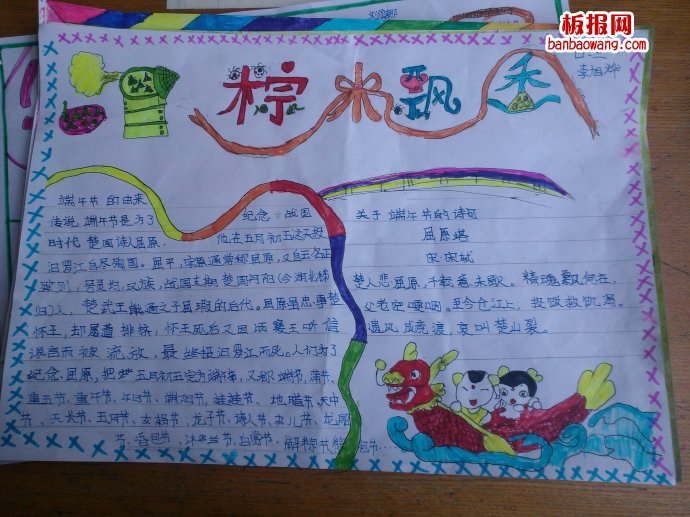 板报网
banbaowang.com
李旭烨
柠米飘香
端午节的由来
传说端午节是为了纪念战国
时代楚国诗人屈原。他在五月初五这天投
汨罗江自尽殉国。屈平,字原通常称屈原,又自云名正
则,号灵均,汉族,战国末期楚国丹阳(今湖北秭
归)人,楚武王熊通之子屈瑕的后代。屈原虽忠事楚
怀王,却屡遭排挤,怀王死后又因顷襄王听信
谗言而被流放,最终投汨罗江而死。人们为了
纪念屈原,把五月初五定为端午佳,又称端节、蒲节、
重五节、重午节、午日节、端阳节、娃娃节、地腊节、天中
节、天长节、五月节、女娲节、龙子节、诗人节、女儿节、地腊
节、浴兰节、沐兰节、白赏节、解粽节
关于端午节的诗句
屈原塔
宋·宋轼
楚人悲屈原,千载意未歇。精魂飘何在,
父老空哽咽。至今仓江上,投饭救饥渴。
遗风成竞渡,哀叫楚山裂。